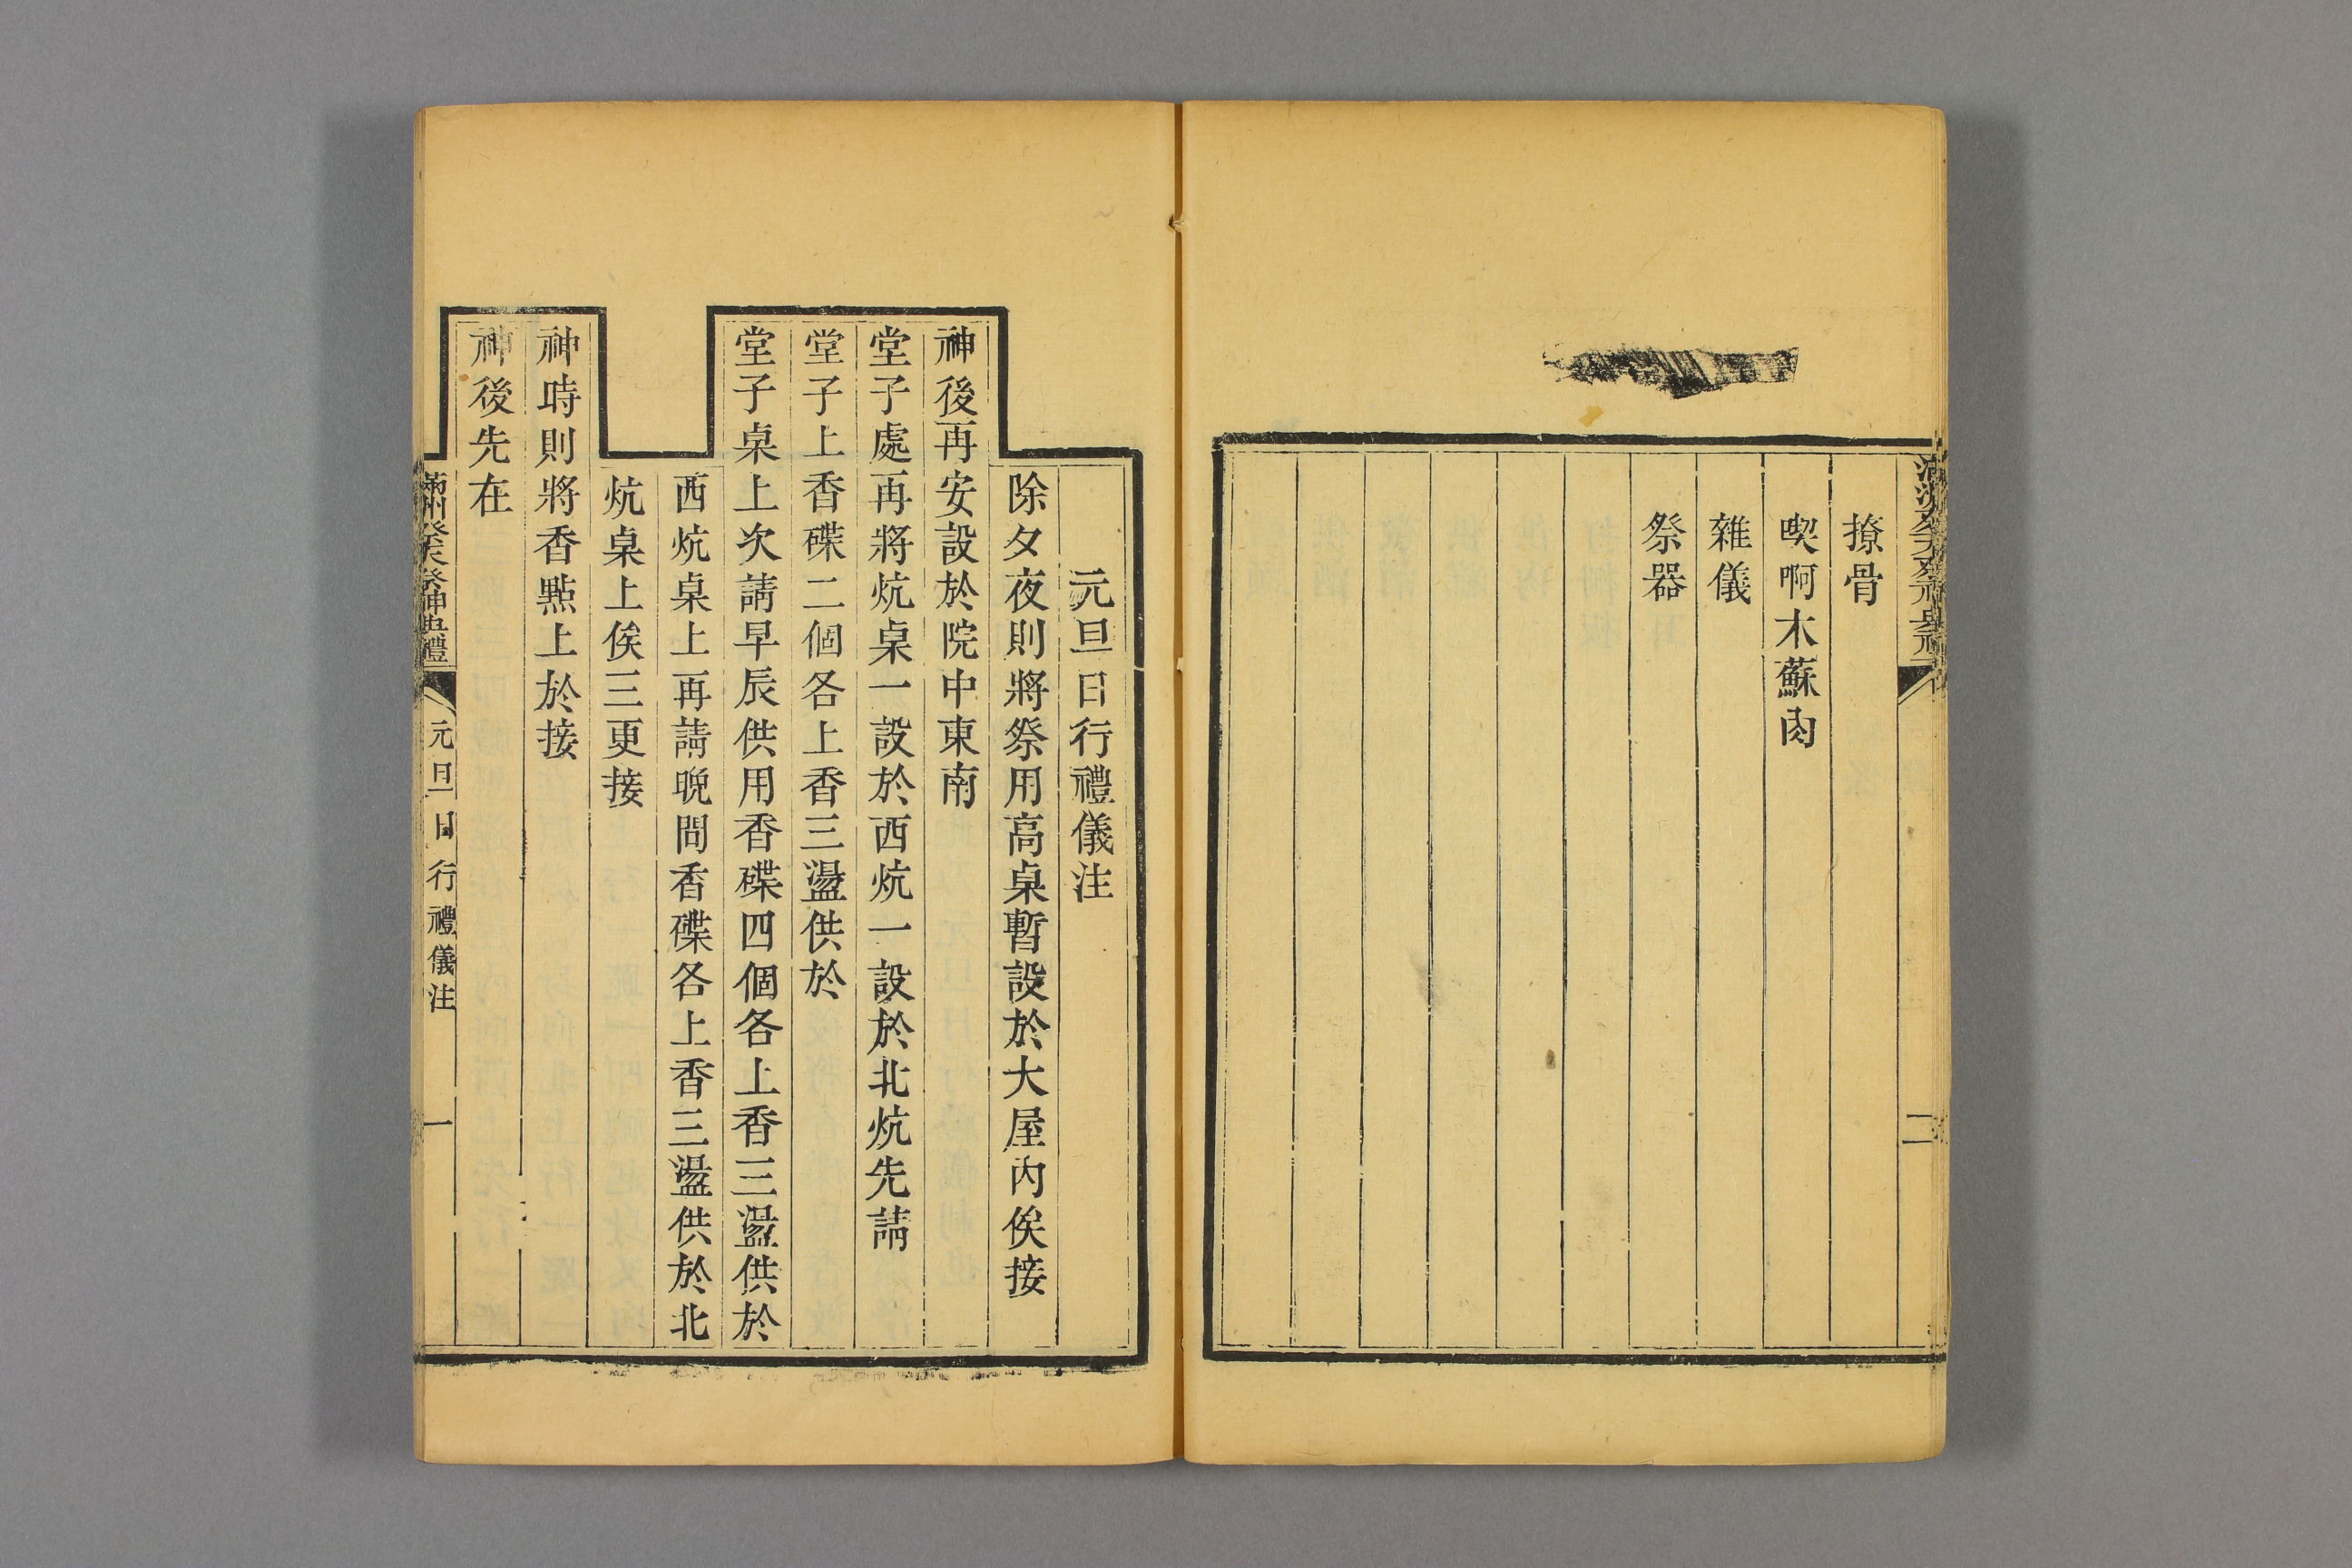 撩骨
喫啊木蘇肉
雜儀
祭器
二
元旦日行禮儀注
除夕夜則將祭用高桌暫設於大屋內俟接
神後再安設於院中東南
堂子處再將炕桌一設於西炕一設於北炕先請
堂子上香碟二個各上香三盪供於
堂子桌上次請早辰供用香碟四個各上香三盪供於
西炕桌上再請晚間香碟各上香三盪供於北
炕桌上俟三更接
神時則將香點上於接
神後先在
滿州祭天祭神典禮
元旦日行禮儀注
一